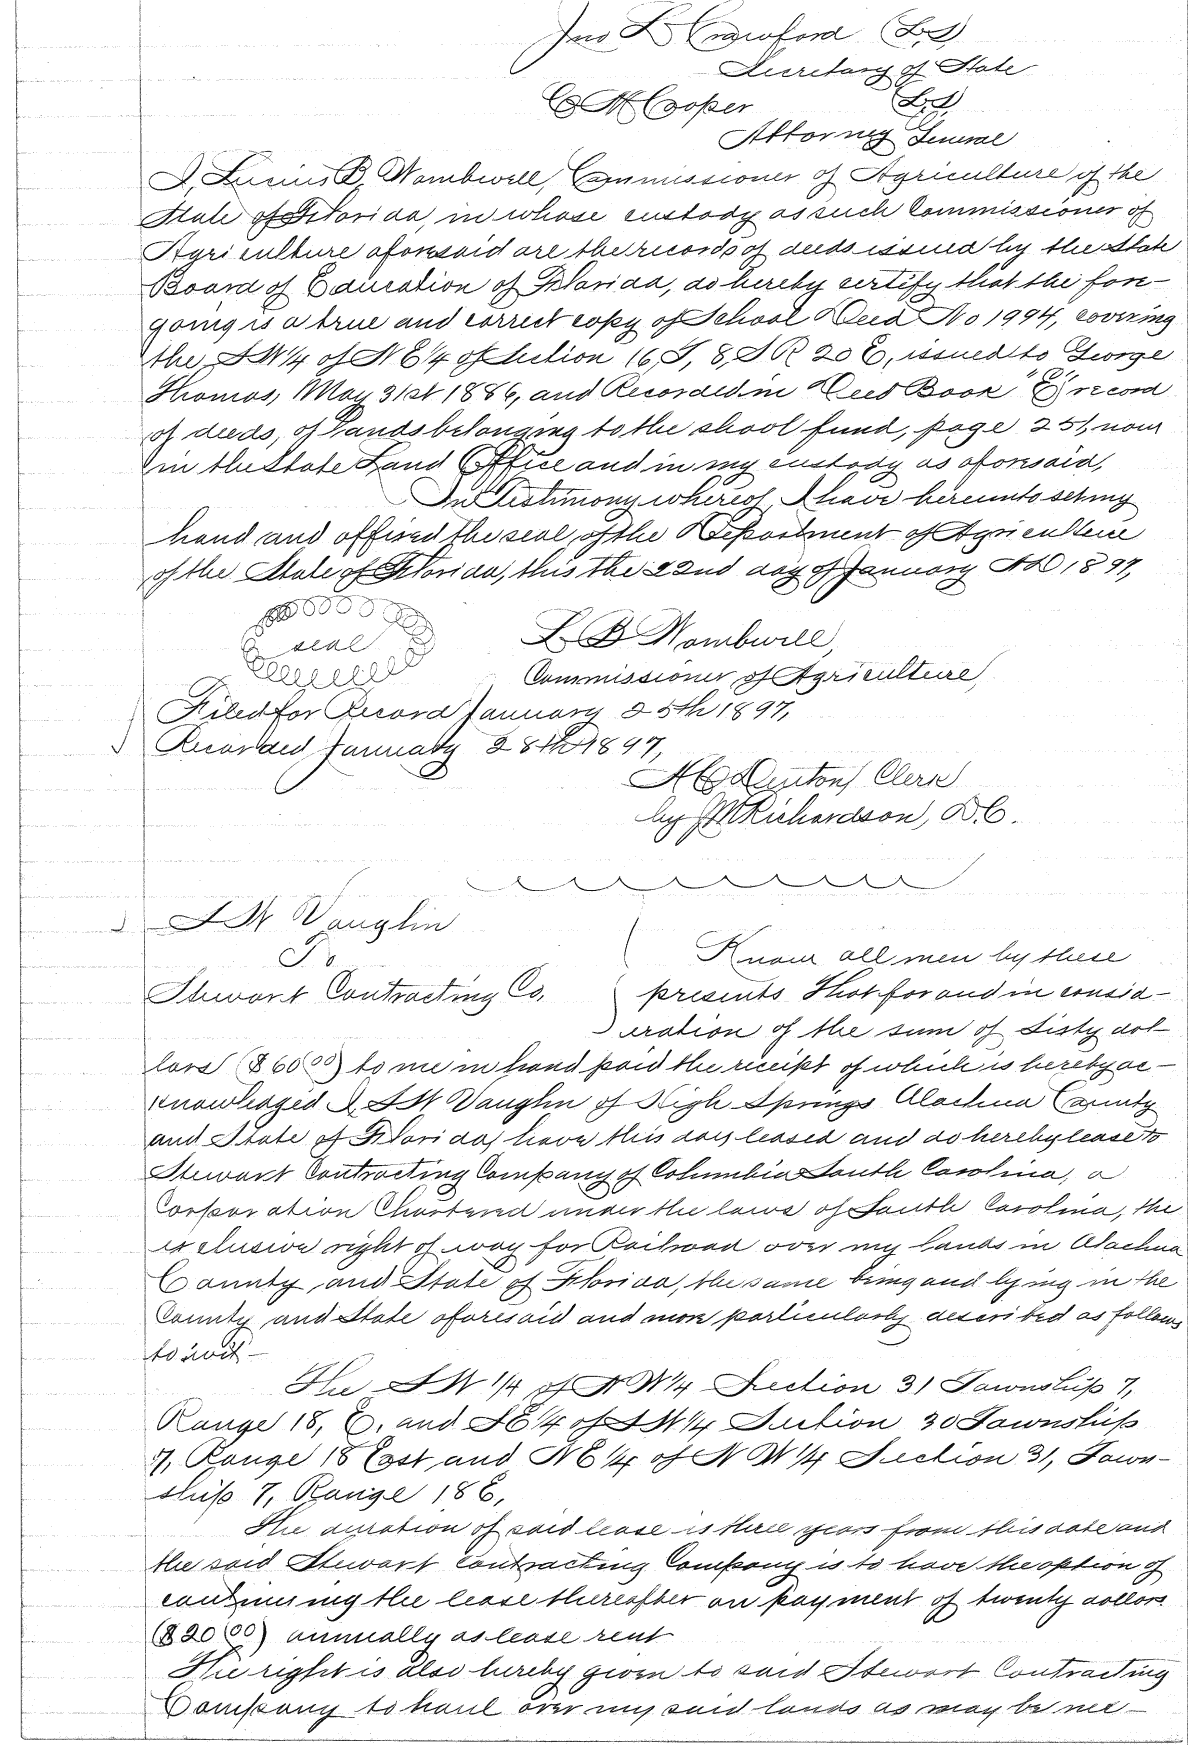 Jno L Crawford (L.S)
Secretary of State
C M Cooper (L.S)
Attorney General
I, Lucius B. Wombwell, Commissioner of Agriculture of the
State of Florida, in whose custody as such Commissioner of
Agriculture aforesaid are the records of deeds issued by the State
Board of Education of Florida, do hereby certify that the fore-
going is a true and correct copy of School Deed No 1994, covering
the SW1/4 of NE1/4 of Section 16, T, 8, S R 20 E, issued to George
Thomas, May 31st 1886, and Recorded in Deed Book "E" record
of deeds, of lands belonging to the shool fund, page 251, now
in the State Land Office and in my custody as aforesaid,
In Testimony whereof, I have hereunto set my
hand and affixed the seal of the Department of Agriculture
of the State of Florida, this the 22nd day of January AD 1897,
seal L B Wombwell,
Commissioner of Agriculture,
Filed for Record January 25th 1897,
Recorded January 28th 1897,
Clerk
by JMRichardson, D.C.
S W Vauglin
To
Stewart Contracting Co,
Know all men by these
presents That for and in consid-
eration of the sum of Sixty dol-
lars ($60 00) to me in hand paid the receipt of which is hereby ac-
knowledged I, S W Vauglin of High Springs Alachua County
and State of Florida, have this day leased and do hereby lease to
Stewart Contracting Company of Columbia South Carolina, a
Corporation Chartered under the laws of South Carolina, the
exclusive right of way for Railroad over my lands in Alachua
County and State of Florida, the same being and lying in the
County and State aforesaid and more particularly described as follows
to wit -
The SW 1/4 of NW1/4 Section 31 Township 7,
Range 18, E. and SE1/4 of SW1/4 Section 30 Township
7, Range 18 East and NE1/4 of NW1/4 Section 31, Town-
ship 7, Range 18E,
The duration of said lease is three years from this date and
the said Stewart Contracting Company is to have the option of
continuing the lease thereafter on payment of twenty dollars
($20 00) annually as lease rent
The right is also hereby given to said Stewart Contracting
Company to haul over my said lands as may be nec-